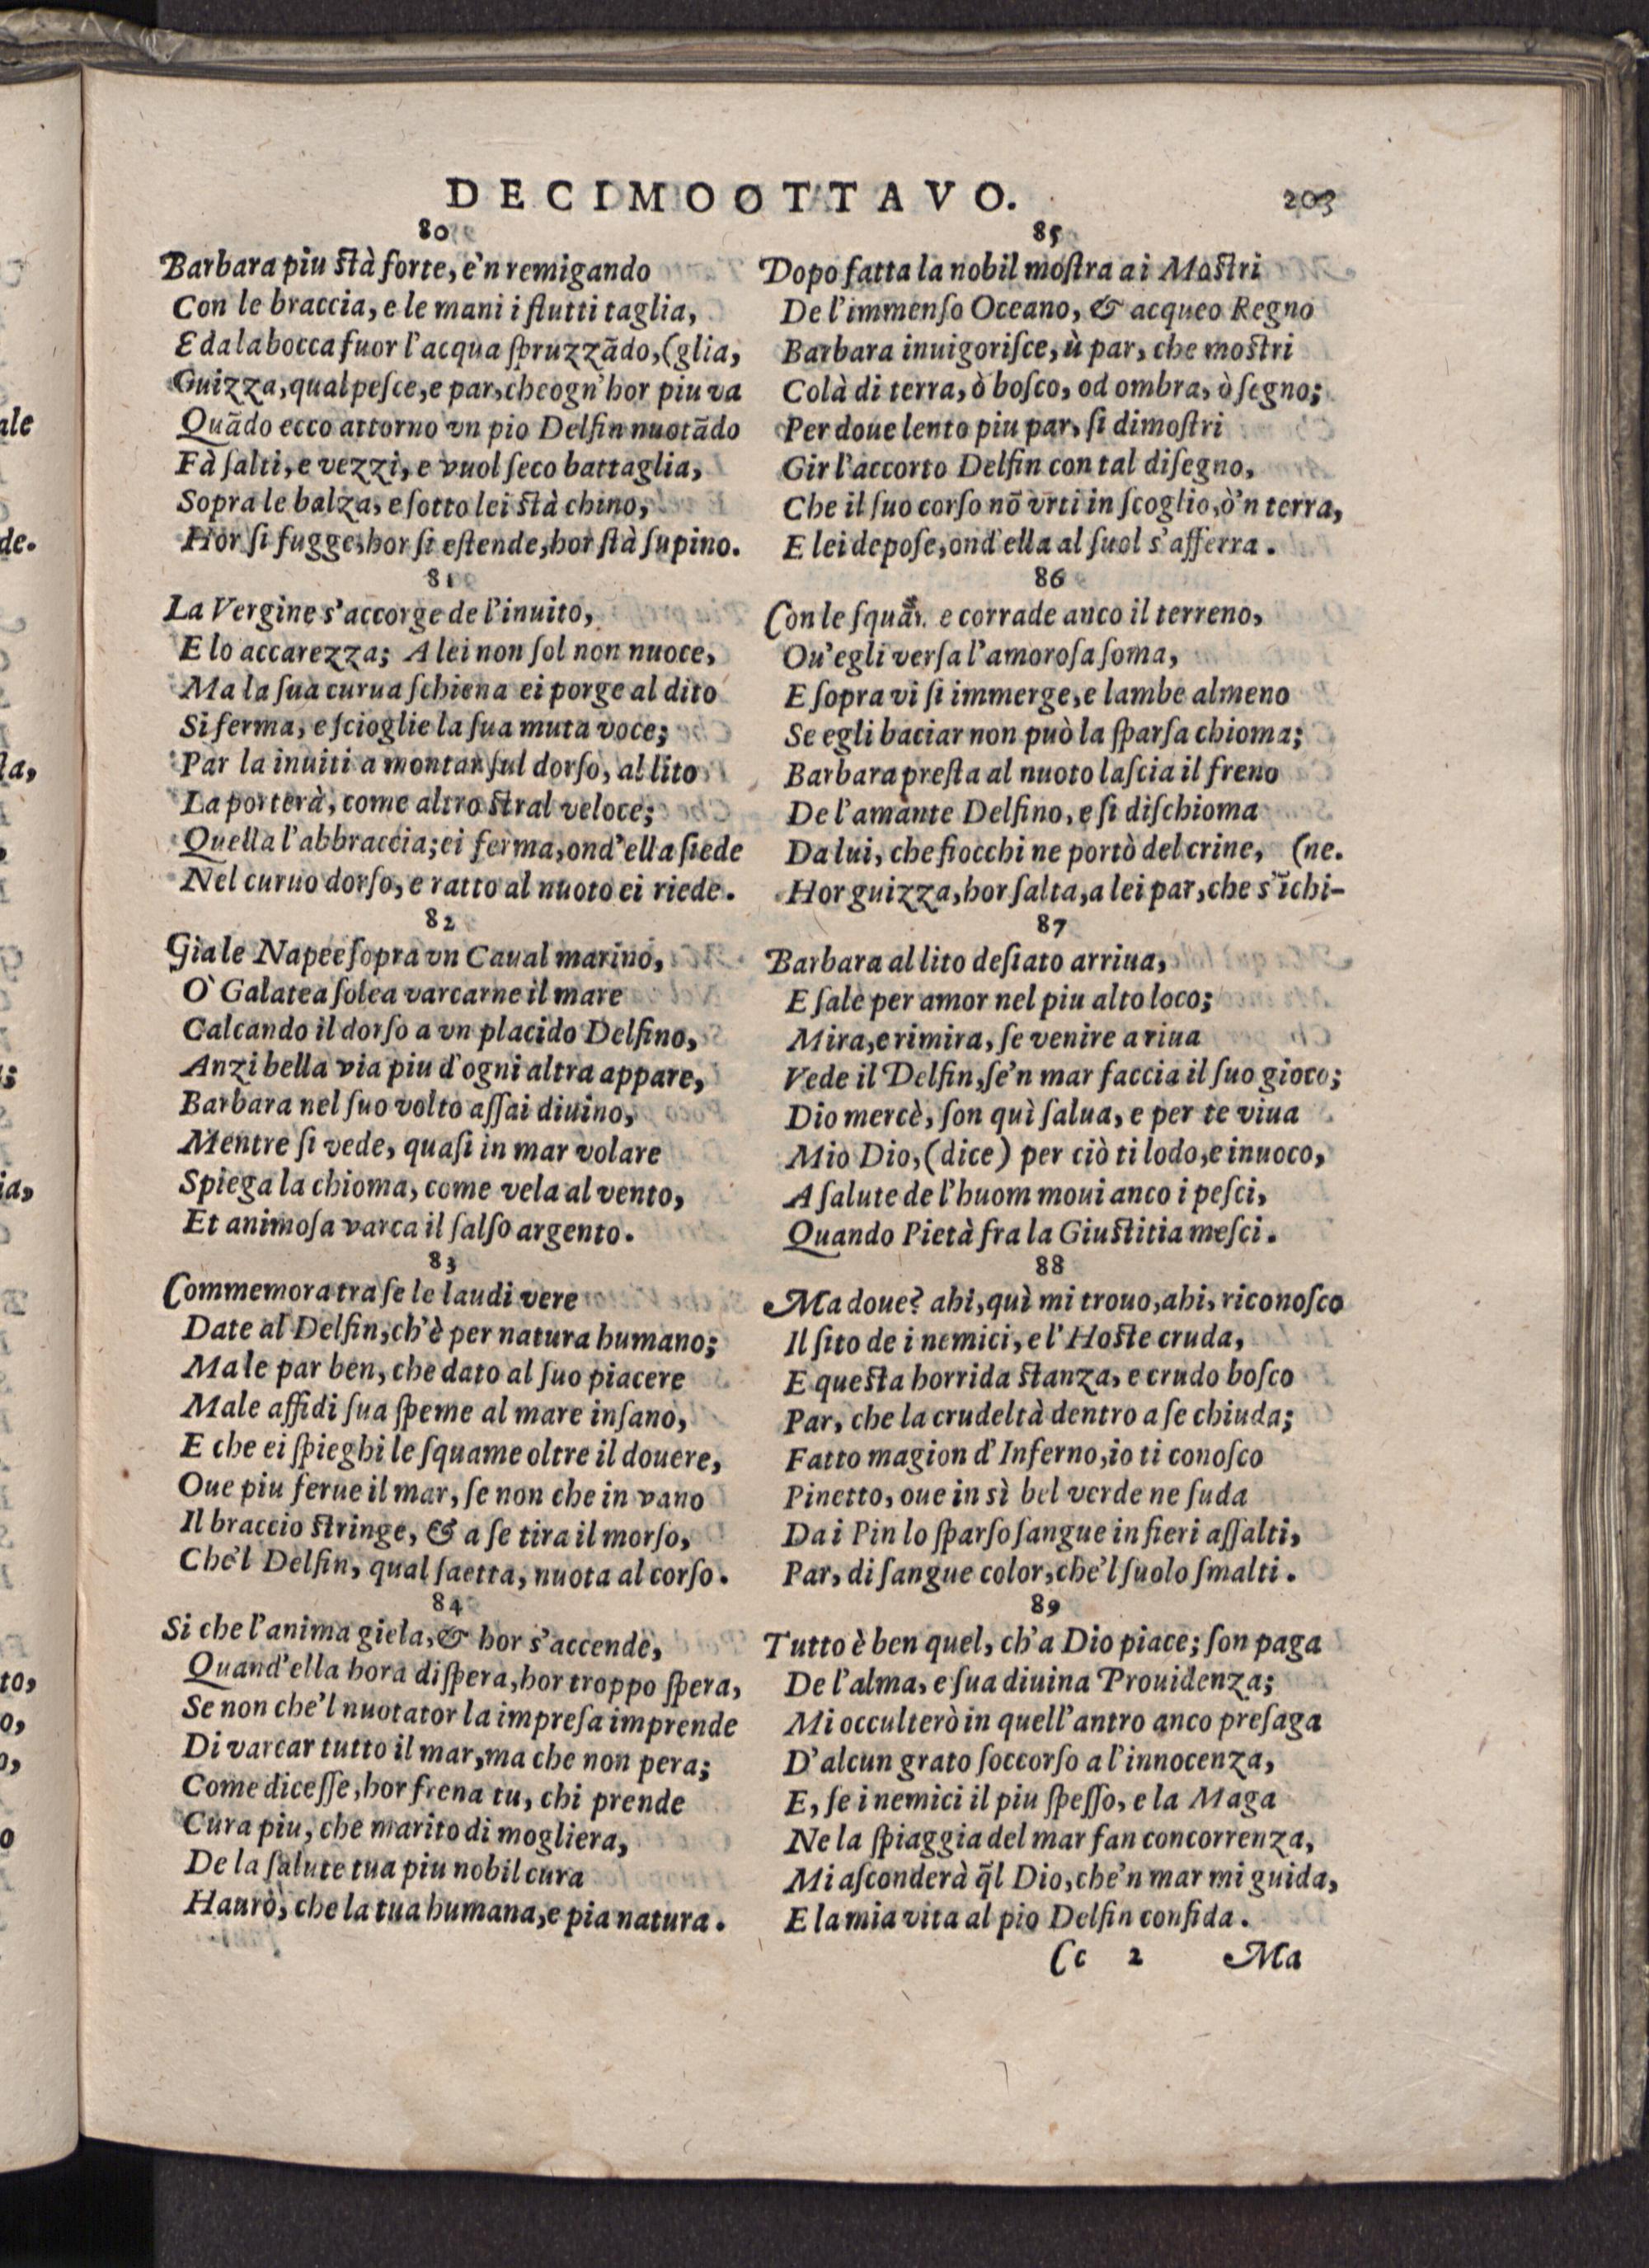 DECIMOOTTAVO. 203
80
Barbara piu ſtà forte, e'n remigando
Con le braccia, e le mani i flutti taglia,
E da la bocca fuor l'acqua ſpruzzãdo, (glia,
Guizza, qual peſce, e par, che ogn'hor piu va
Quãdo ecco attorno vn pio Delfin nuotãdo
Fà ſalti, e vezzi, e vuol ſeco battaglia,
Sopra le balza, e ſotto lei ſtà chino,
Hor ſi fugge, hor ſi eſtende, hor ſtà ſupino.
81
La Vergine s'accorge de l'inuito,
E lo accarezza; A lei non ſol non nuoce,
Ma la ſua curua ſchiena ei porge al dito
Si ferma, e ſcioglie la ſua muta voce;
Par la inuiti a montar ſul dorſo, al lito
La porterà, come altro ſtral veloce;
Quella l'abbraccia; ei ferma, ond'ella ſiede
Nel curuo dorſo, e ratto al nuoto ei riede.
82
Gia le Napee ſopra vn Caual marino,
Ò Galatea ſolea varcarne il mare
Calcando il dorſo a vn placido Delfino,
Anzi bella via piu d'ogni altra appare,
Barbara nel ſuo volto aſſai diuino,
Mentre ſi vede, quaſi in mar volare
Spiega la chioma, come vela al vento,
Et animoſa varca il ſalſo argento.
83
Commemora tra ſe le laudi vere
Date al Delfin, ch'è per natura humano;
Ma le par ben, che dato al ſuo piacere
Male affidi ſua ſpeme al mare inſano,
E che ei ſpieghi le ſquame oltre il douere,
Oue piu ferue il mar, ſe non che in vano
Il braccio ſtringe, & a ſe tira il morſo,
Che'l Delfin, qual ſaetta, nuota al corſo.
84
Si che l'anima giela, & hor s'accende,
Quand'ella hora diſpera, hor troppo ſpera,
Se non che'l nuotator la impreſa imprende
Di varcar tutto il mar, ma che non pera;
Come diceſſe, hor frena tu, chi prende
Cura piu, che marito di mogliera,
De la ſalute tua piu nobil cura
Haurò, che la tua humana, e pia natura.
85
Dopo fatta la nobil moſtra ai Moſtri
De l'immenſo Oceano, & acqueo Regno
Barbara inuigoriſce, ù par, che moſtri
Colà di terra, ò boſco, od ombra, ò ſegno;
Per doue lento piu par, ſi dimoſtri
Gir l'accorto Delfin con tal diſegno,
Che il ſuo corſo nõ vrti in ſcoglio, ò'n terra,
E lei depoſe, ond'ella al ſuol s'afferra.
86
Con le e corrade anco il terreno,
Ou'egli verſa l'amoroſa ſoma,
E ſopra vi ſi immerge, e lambe almeno
Se egli baciar non può la ſparſa chioma;
Barbara preſta al nuoto laſcia il freno
De l'amante Delfino, e ſi diſchioma
Da lui, che fiocchi ne portò del crine, (ne.
Hor guizza, hor ſalta, a lei par, che s'ĩchi-
87
Barbara al lito deſiato arriua,
E ſale per amor nel piu alto loco;
Mira, e rimira, ſe venire a riua
Vede il Delfin, ſe'n mar faccia il ſuo gioco;
Dio mercè, ſon quì ſalua, e per te viua
Mio Dio, (dice) per ciò ti lodo, e inuoco,
A ſalute de l'huom moui anco i peſci,
Quando Pietà fra la Giuſtitia meſci.
88
Ma doue? ahi, quì mi trouo, ahi, riconoſco
Il ſito de i nemici, e l'Hoſte cruda,
E queſta horrida ſtanza, e crudo boſco
Par, che la crudeltà dentro a ſe chiuda;
Fatto magion d'Inferno, io ti conoſco
Pinetto, oue in sì bel verde ne ſuda
Da i Pin lo ſparſo ſangue in fieri aſſalti,
Par, di ſangue color, che'l ſuolo ſmalti.
89
Tutto è ben quel, ch'a Dio piace; ſon paga
De l'alma, e ſua diuina Prouidenza;
Mi occulterò in quell'antro anco preſaga
D'alcun grato ſoccorſo a l'innocenza,
E, ſe i nemici il piu ſpeſſo, e la Maga
Ne la ſpiaggia del mar fan concorrenza,
Mi aſconderà q̃l Dio, che'n mar mi guida,
E la mia vita al pio Delfin confida.
Cc 2 Ma
ale
de.
la,
ia,
to,
o,